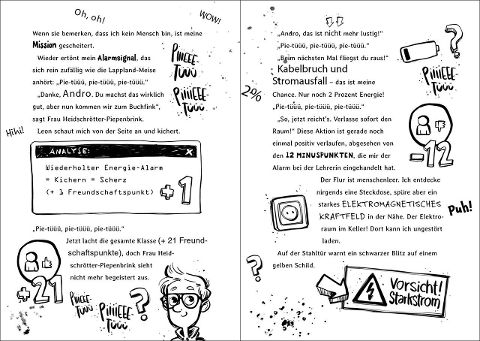 Oh, oh!
WOW!
Wenn sie bemerken, dass ich kein Mensch bin, ist meine
Mission gescheitert.
Wieder ertönt mein Alarmsignal, das
sich rein zufällig wie die Lappland-Meise
anhört: „Pie-tüüü, pie-tüüü, pie-tüüü.“
„Danke, Andro. Du machst das wirklich
gut, aber nun kommen wir zum Buchfink“,
sagt Frau Heidschrötter-Piepenbrink.
Leon schaut mich von der Seite an und kichert.
PIIIEEE-
TÜÜÜ
PIIIEEE-
TÜÜÜ
Hihi!
ANALYSE:
X
Wiederholter Energie-Alarm
= Kichern = Scherz
(+ 1 Freundschaftspunkt)
+1
„Pie-tüüü, pie-tüüü, pie-tüüü.“
Jetzt lacht die gesamte Klasse (+ 21 Freund-
schaftspunkte), doch Frau Heid-
schrötter-Piepenbrink sieht
nicht mehr begeistert aus.
+21
PIIIEEE-
TÜÜÜ
PIIIEEE-
TÜÜÜ
?
„Andro, das ist nicht mehr lustig!“
„Pie-tüüü, pie-tüüü, pie-tüüü.“
„Beim nächsten Mal fliegst du raus!“
Kabelbruch und
Stromausfall – das ist meine
Chance. Nur noch 2 Prozent Energie!
„Pie-tüüü, pie-tüüü, pie-tüüü.“
„So, jetzt reicht's. Verlasse sofort den
Raum!“ Diese Aktion ist gerade noch
einmal positiv verlaufen, abgesehen von
den 12 MINUSPUNKTEN, die mir der
Alarm bei der Lehrerin eingehandelt hat.
?
PIIIEEE-
TÜÜÜ
2%
-12
Der Flur ist menschenleer. Ich entdecke
nirgends eine Steckdose, spüre aber ein
starkes ELEKTROMAGNETISCHES
KRAFTFELD in der Nähe. Der Elektro-
raum im Keller! Dort kann ich ungestört
laden.
Puh!
Auf der Stahltür warnt ein schwarzer Blitz auf einem
gelben Schild.
Vorsicht!
Starkstrom